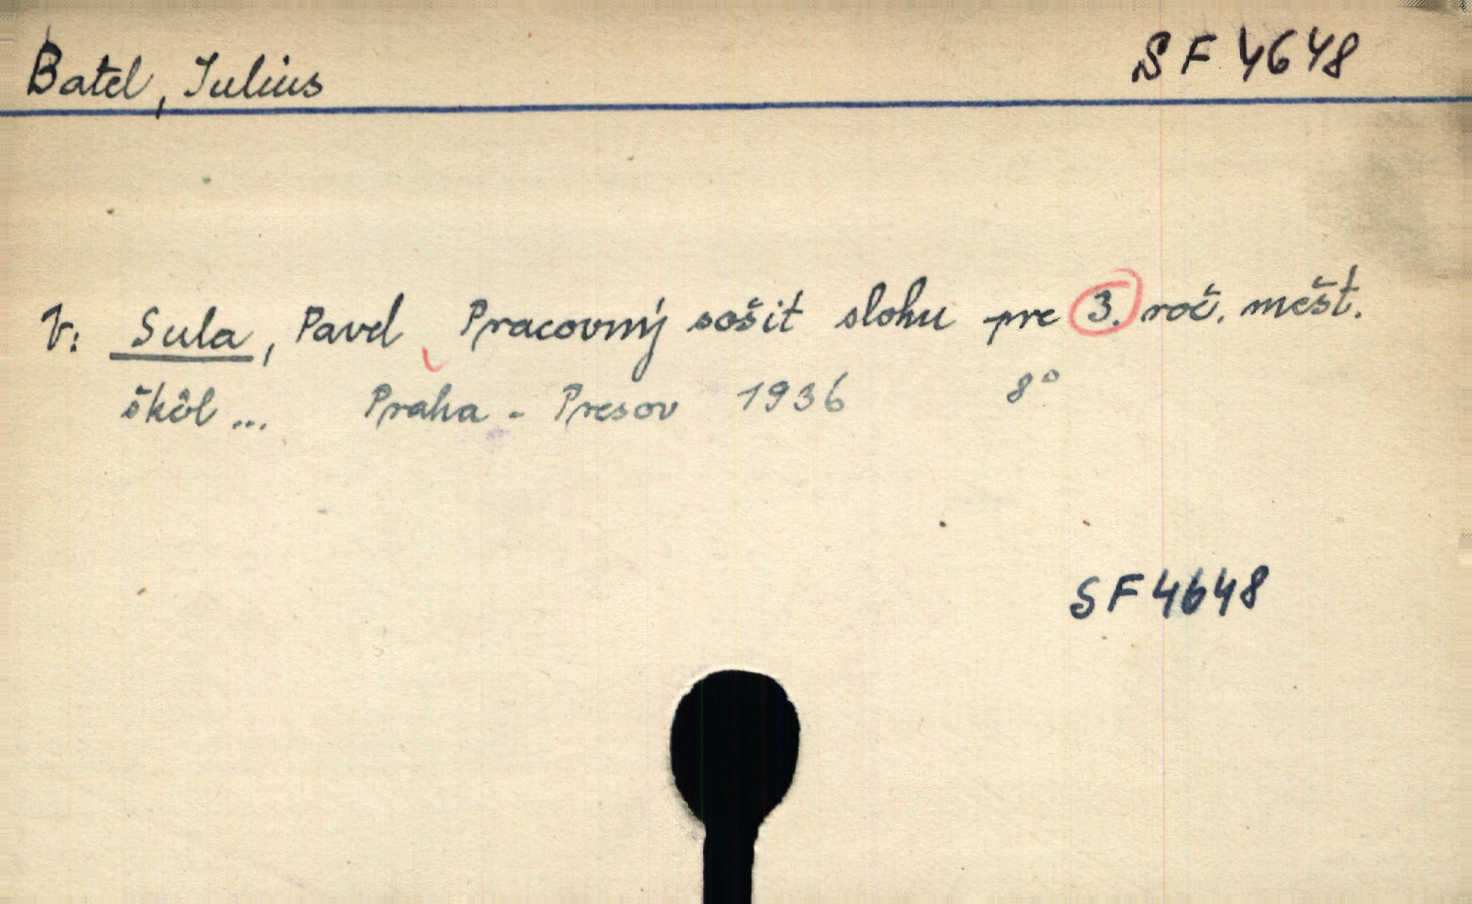 Batel, Julius SF 4648
V: Sula, Pavel Pracovný sošit slohu pre 3. roč. mešt.
škôl ... Praha - Presov 1936 8°
SF 4648